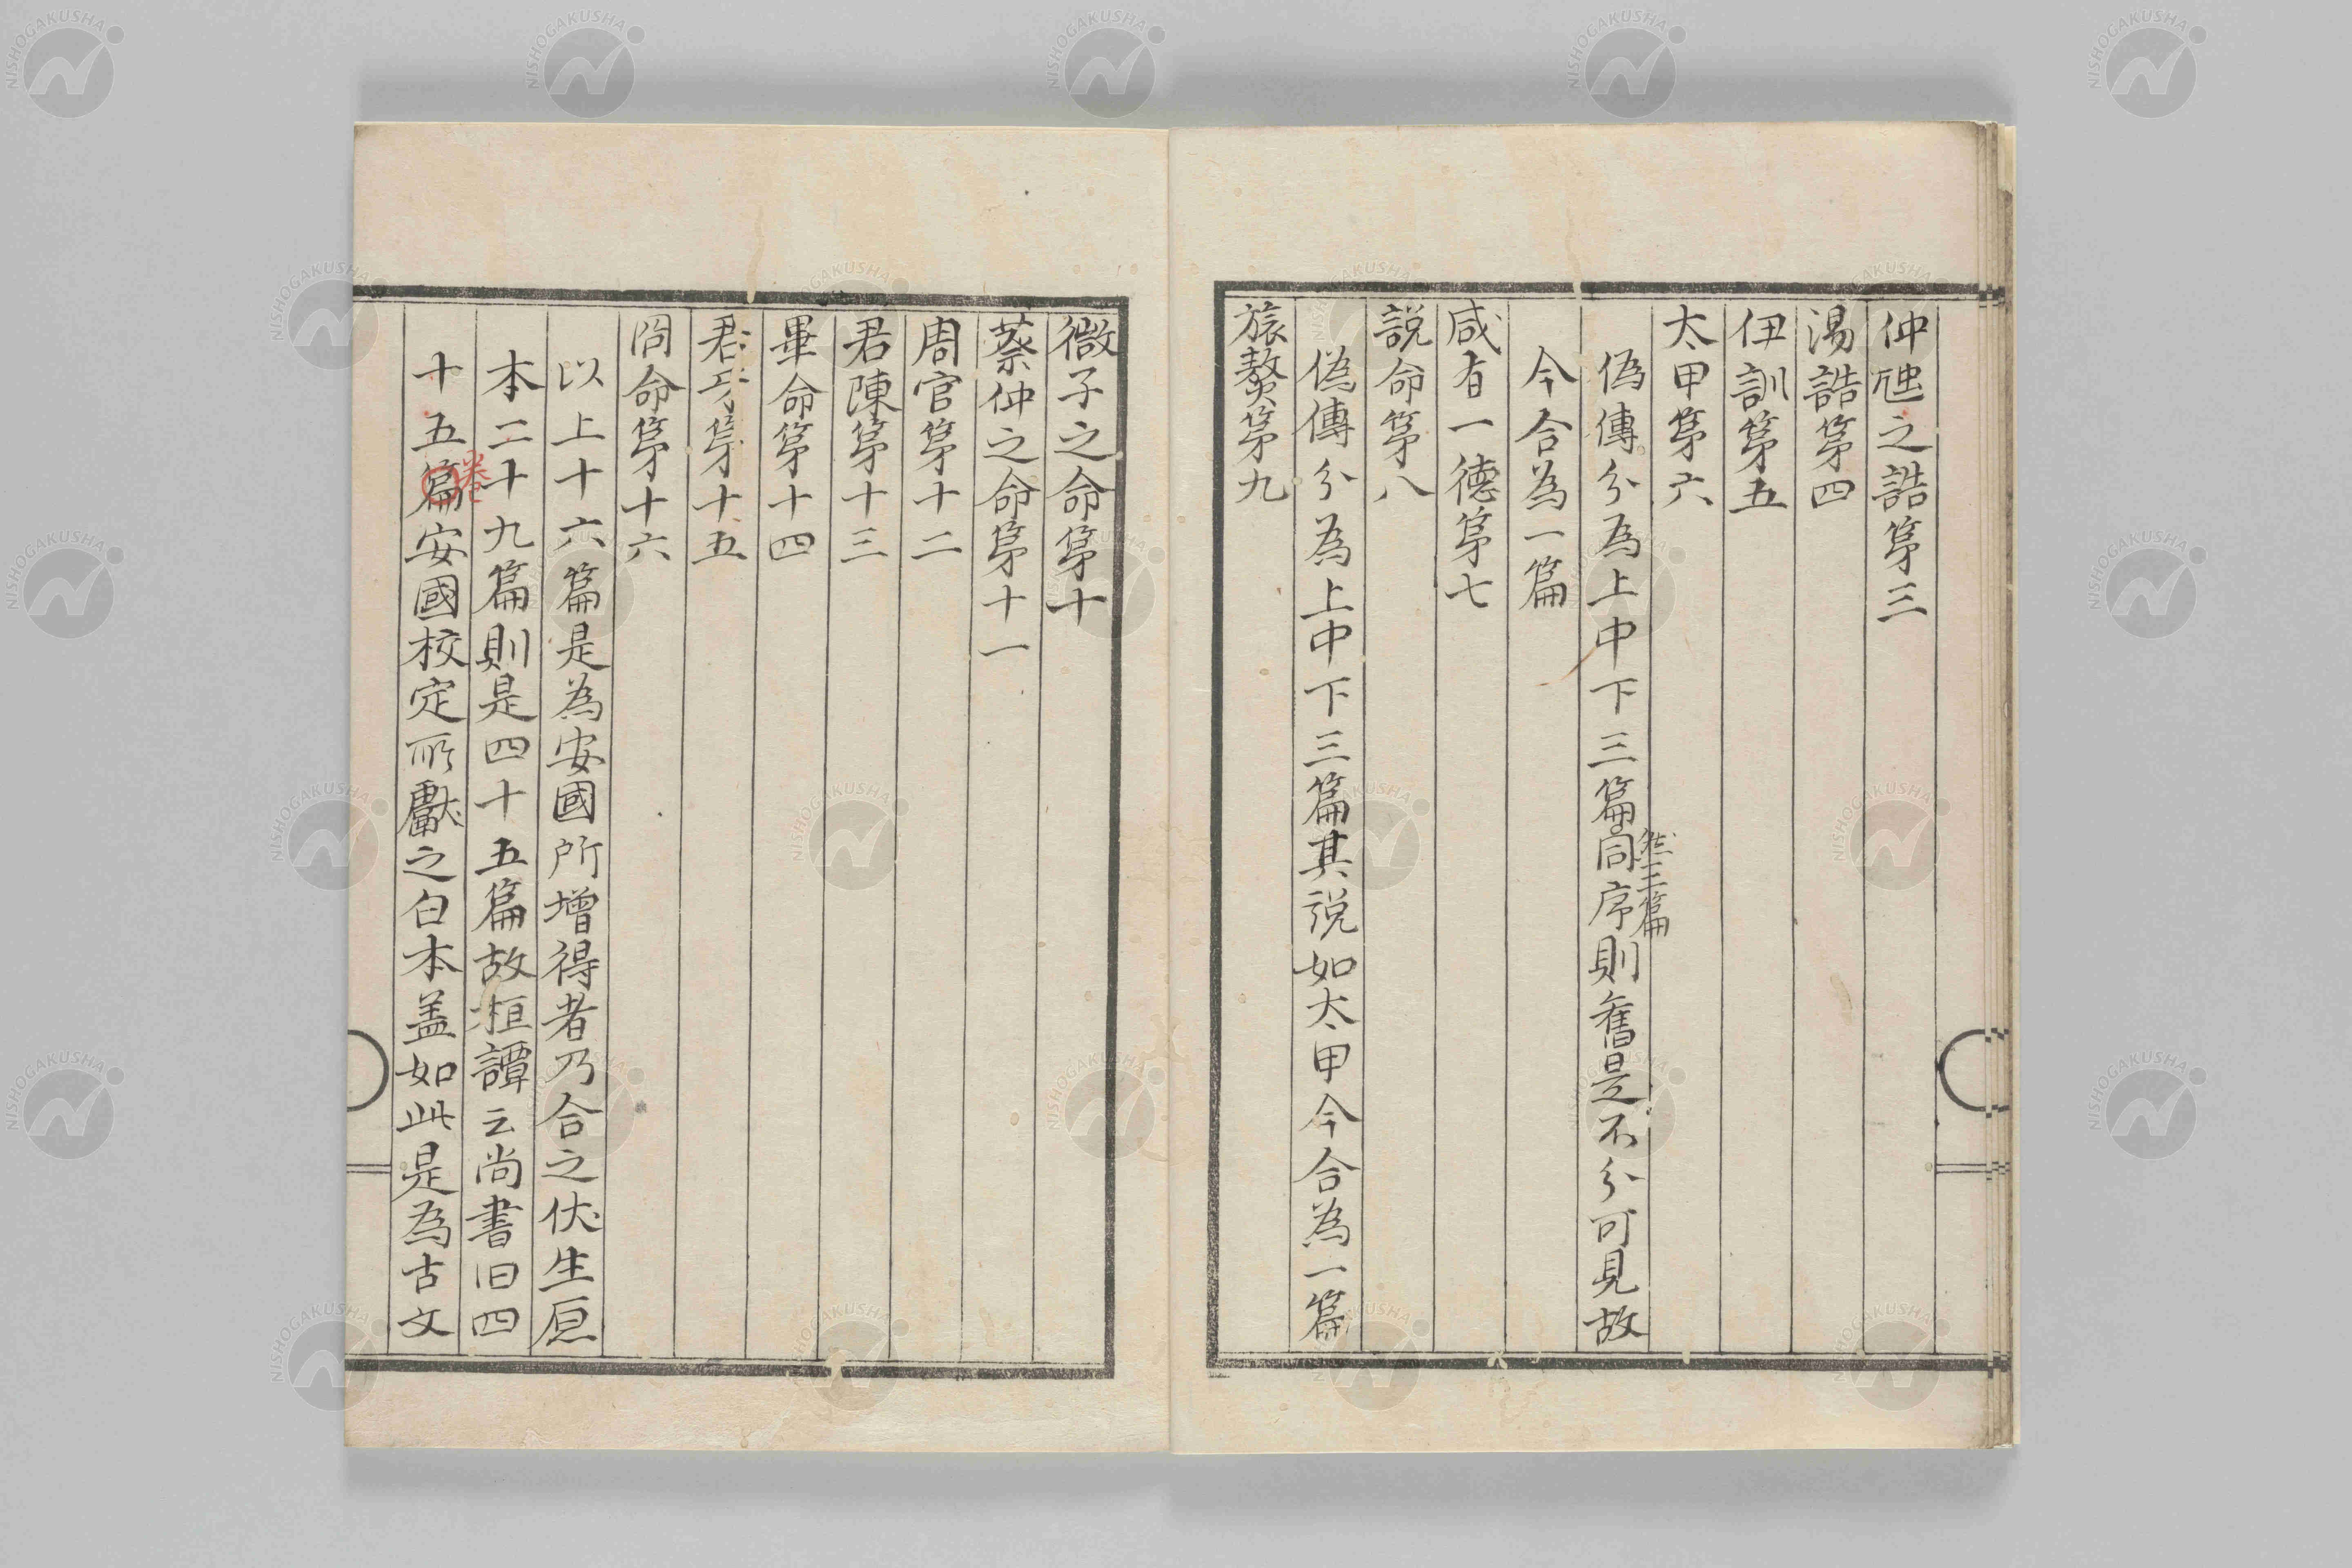 仲虺之誥第三
湯誥第四
伊訓第五
太甲第六
偽傳分為上中下三篇同序則舊是不分可見故
然三篇
今合為一篇
咸有一德第七
説命第八
偽傳分為上中下三篇其説如太甲今合為一篇
旅獒第九
微子之命第十
蔡仲之命第十一
周官第十二
君陳第十三
畢命第十四
君牙第十五
冏命第十六
以上十六篇是為安國所增得者乃合之伏生原
本二十九篇則是四十五篇故桓譚云尚書旧四
十五篇安國校定所獻之白本盖如此是為古文
卷
NISHOGAKUSHA